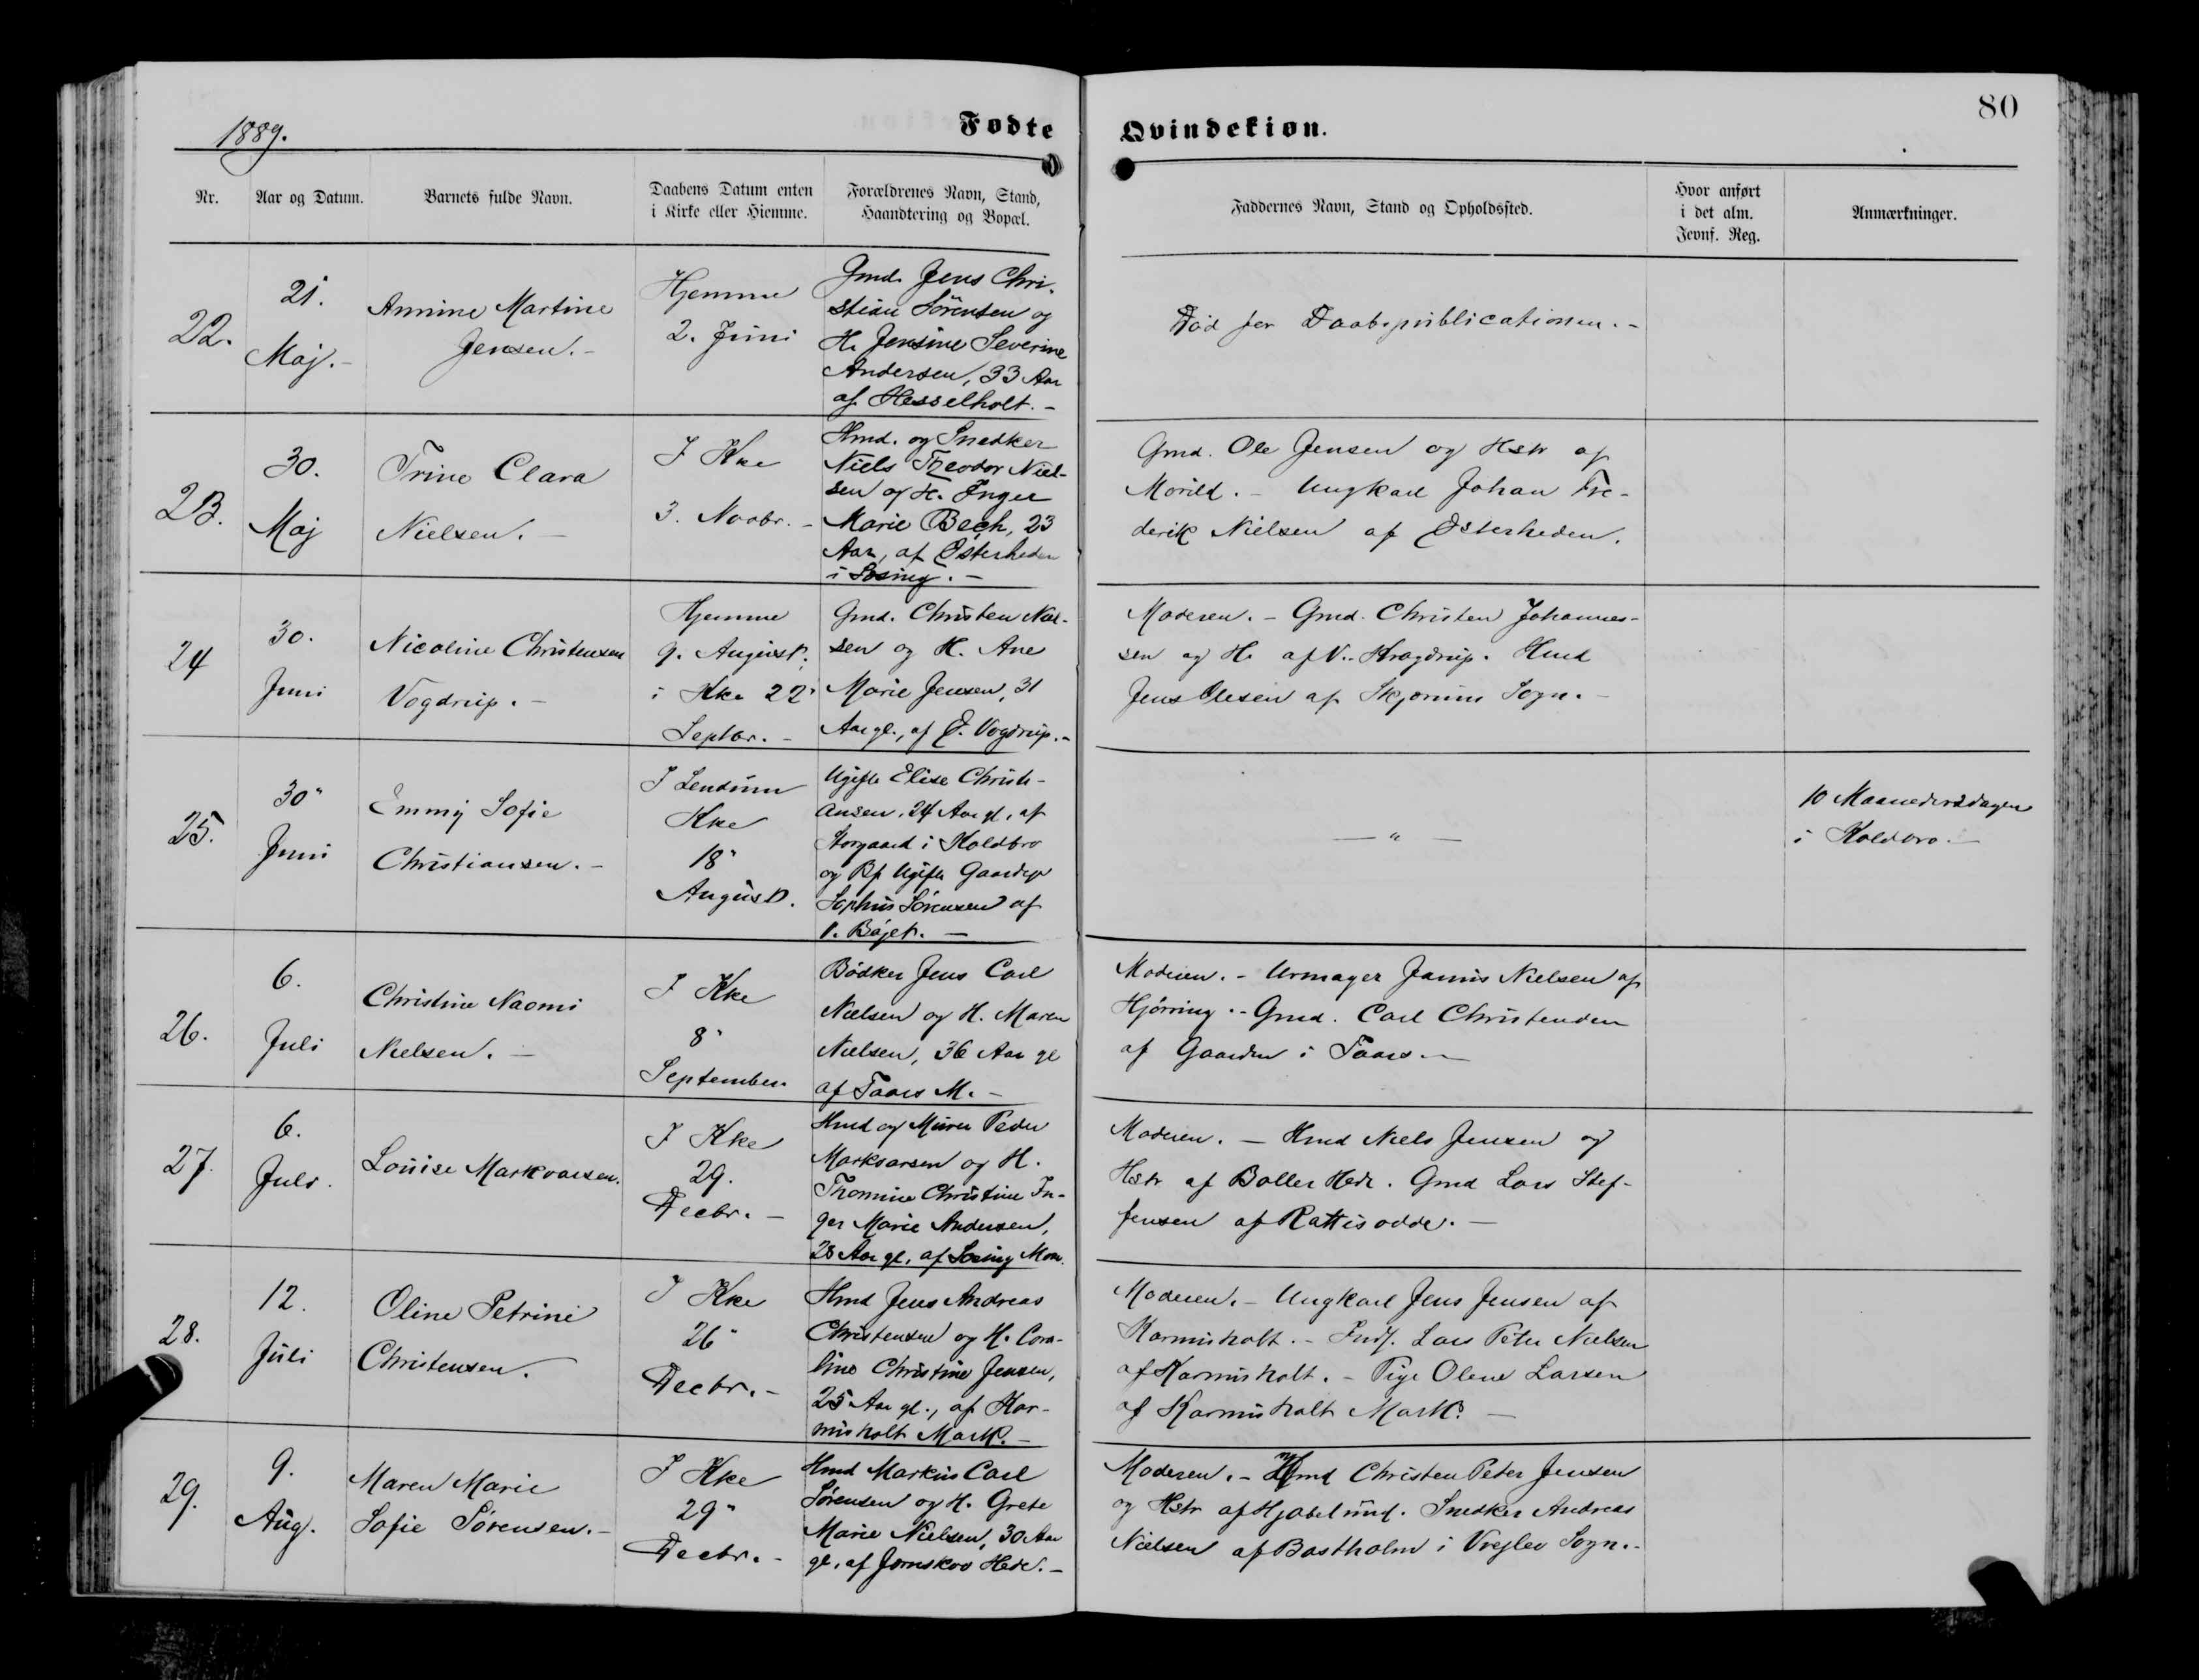 80
1889.
Fødte Qvindekiøn.
Nr.
Aar og Datum.
Barnets fulde Navn.
Daabens Datum enten
i Kirke eller Hiemme.
Forældrenes Navn, Stand,
Haandtering og Bopæl.
Faddernes Navn, Stand og Opholdssted.
Hvor anført
i det alm.
Jevnf. Reg.
Anmærkninger.
22.
21.
Maj.-
Annine Martine
Jensen.-
Hjemme
2. Juni
Gmd. Jens Chri-
stian Sörensen og
H. Jensine Severine
Andersen, 33 Aar
af Hesselholt.-
Död før Daabspublicationen.-
23.
30.
Maj
Trine Clara
Nielsen.-
I Kke
3. Novbr.-
Hmd. og Snedker
Niels Theodor Niel-
sen og H. Inger
Marie Bech, 23
Aar, af Østerheden
i Sæsing.-
Gmd. Ole Jensen og Hstr af
Morild.- Ungkarl Johan Fre-
derik Nielsen af Østerheden.
24
30.
Juni
Nicoline Christensen
Vogdrup.-
Hjemme
9. August;
i Kke 22.
Septbr.-
Gmd. Christen Niel-
sen og H. Ane
Marie Jensen, 31
Aar gl., af Ø. Vogdrup.-
Moderen.- Gmd. Christen Johannes-
sen og H. af V. Kragdrup. Hmd
Jens Olesen af Skjørum Sogn.-
25.
30.
Juni
Emmy Sofie
Christiansen.-
I Lendum
Kke
18.
August.
Ugifte Elise Christi-
ansen, 24 Aar gl. af
Storgaard i Koldbro
og Bf. Ugifte
Sophus Sörensen af
V. Böjet.-
— " —
10 Maanedersdagen
i Koldbro.-
26.
6.
Juli
Christine Naomi
Nielsen.-
I Kke
8.
September
Bödker Jens Carl
Nielsen og H. Maren
Nielsen, 36 Aar gl
af Taars M.-
Moderen.- Urmager Janus Nielsen af
Hjörring.- Gmd. Carl Christensen
af Gaarden i Taars.-
27.
6.
Juli.
Louise Markvarsen.
I Kke
29.
Decbr.-
Hmd og Murer Peder
Markvarsen og H.
Thomine Christine In-
ger Marie Andersen,
28 Aar gl. af Sæsing Mark.
Moderen.- Hmd Niels Jensen og
Hstr af Boller Hede. Gmd Lars Stef-
fensen af Rattisodde.-
28.
12.
Juli
Oline Petrine
Christensen.
I Kke
26.
Decbr.-
Hmd Jens Andreas
Christensen og H. Coro-
line Christine Jensen,
25 Aar gl., af Kar-
misholt Mark.-
Moderen.- Ungkarl Jens Jensen af
Karmisholt.- Inds. Lars Peter Nielsen
af Karmisholt.- Pige Olene Larsen
af Karmisholt Mark.-
29.
9.
Aug.
Maren Marie
Sofie Sörensen.-
I Kke
29.
Decbr.-
Hmd Markus Carl
Sörensen og H. Grete
Marie Nielsen, 30 Aar
gl. af Jomskov Hede.-
Moderen.- Hmd Christen Peter Jensen
og Hstr af Hjabelund. Snedker Andreas
Nielsen af Bastholm i Vrejlev Sogn.-